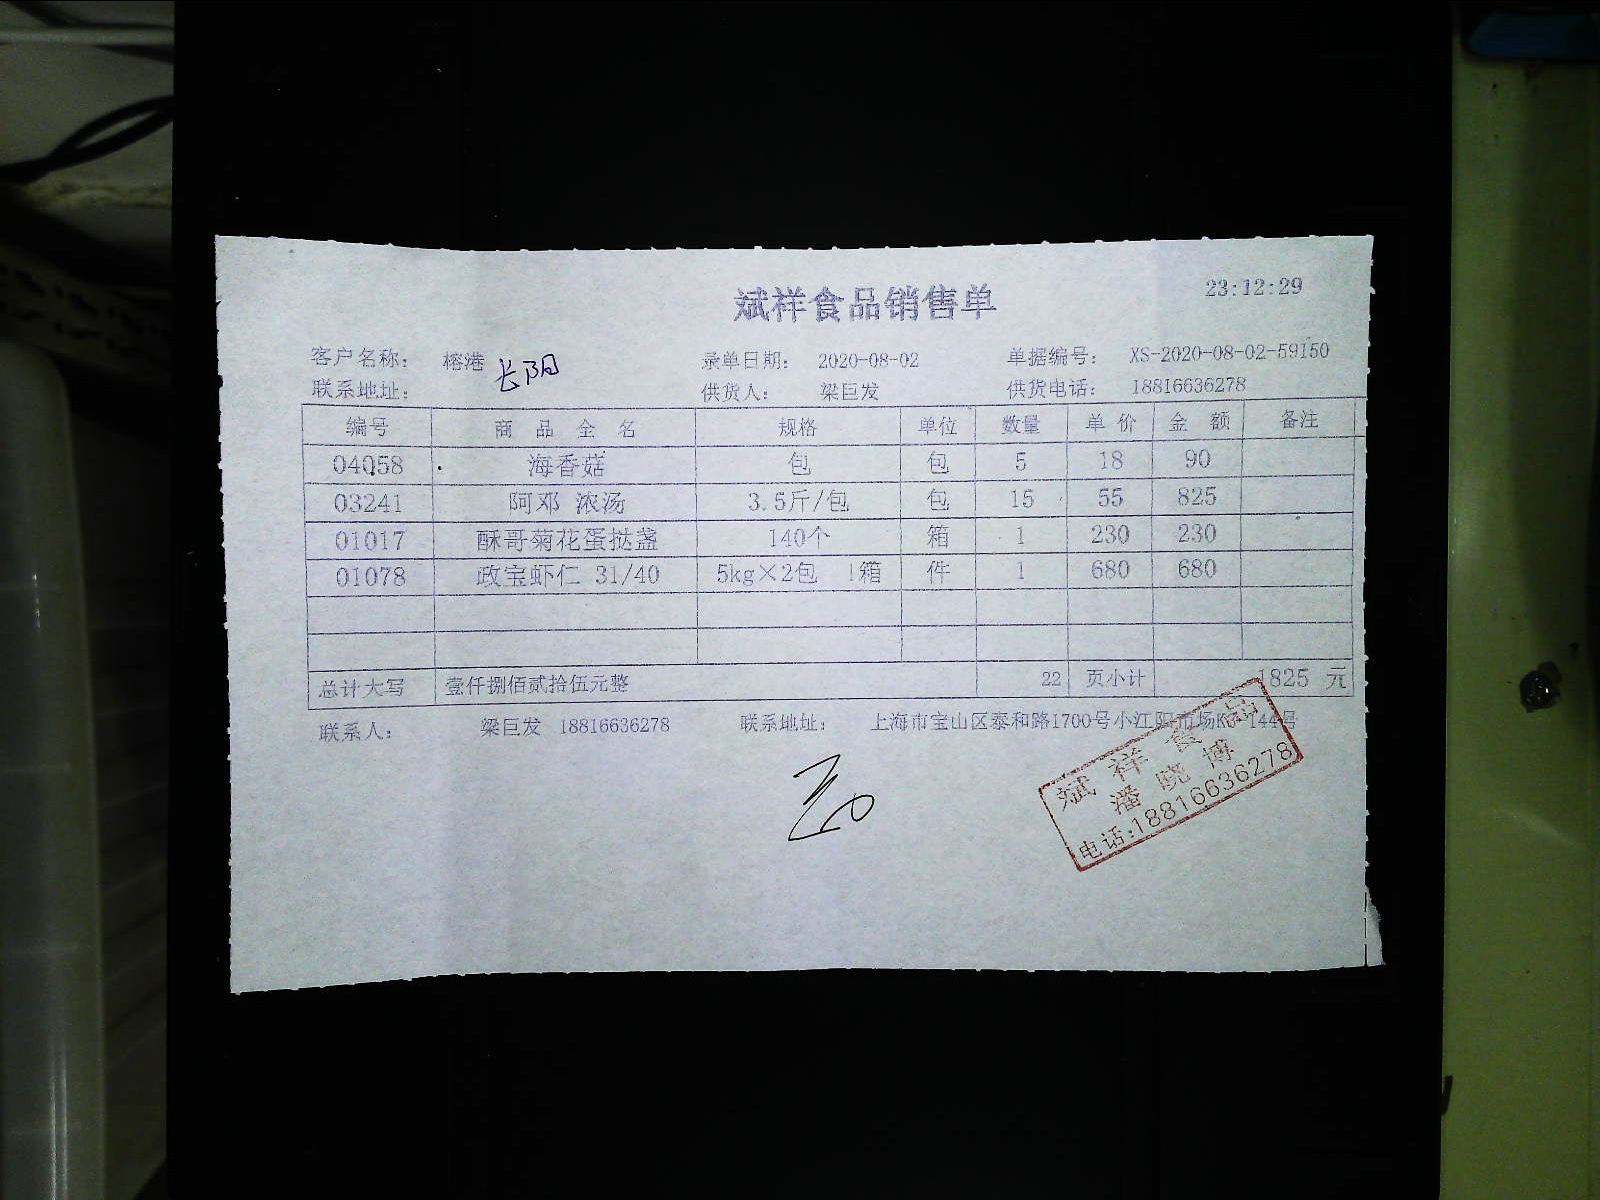 斌祥食品销售单 23:12:29
客户名称： 榕港 长阳 录单日期： 2020-08-02 单据编号： XS-2020-08-02-59150
联系地址： 供货人： 梁巨发 供货电话： 18816636278
编号 商 品 全 名 规格 单位 数量 单 价 金 额 备注
04058 海香菇 包 包 5 18 90
03241 阿邓 浓汤 3.5斤/包 包 15 55 825
01017 酥哥菊花蛋挞盏 140个 箱 1 230 230
01078 政宝虾仁 31/40 5kg×2包 1箱 件 1 680 680
总计大写 壹仟捌佰贰拾伍元整 22 页小计 1825 元
联系人： 梁巨发 18816636278 联系地址： 上海市宝山区泰和路1700号小江阳市场 144号
斌祥食品
潘晓博
电话:18816636278